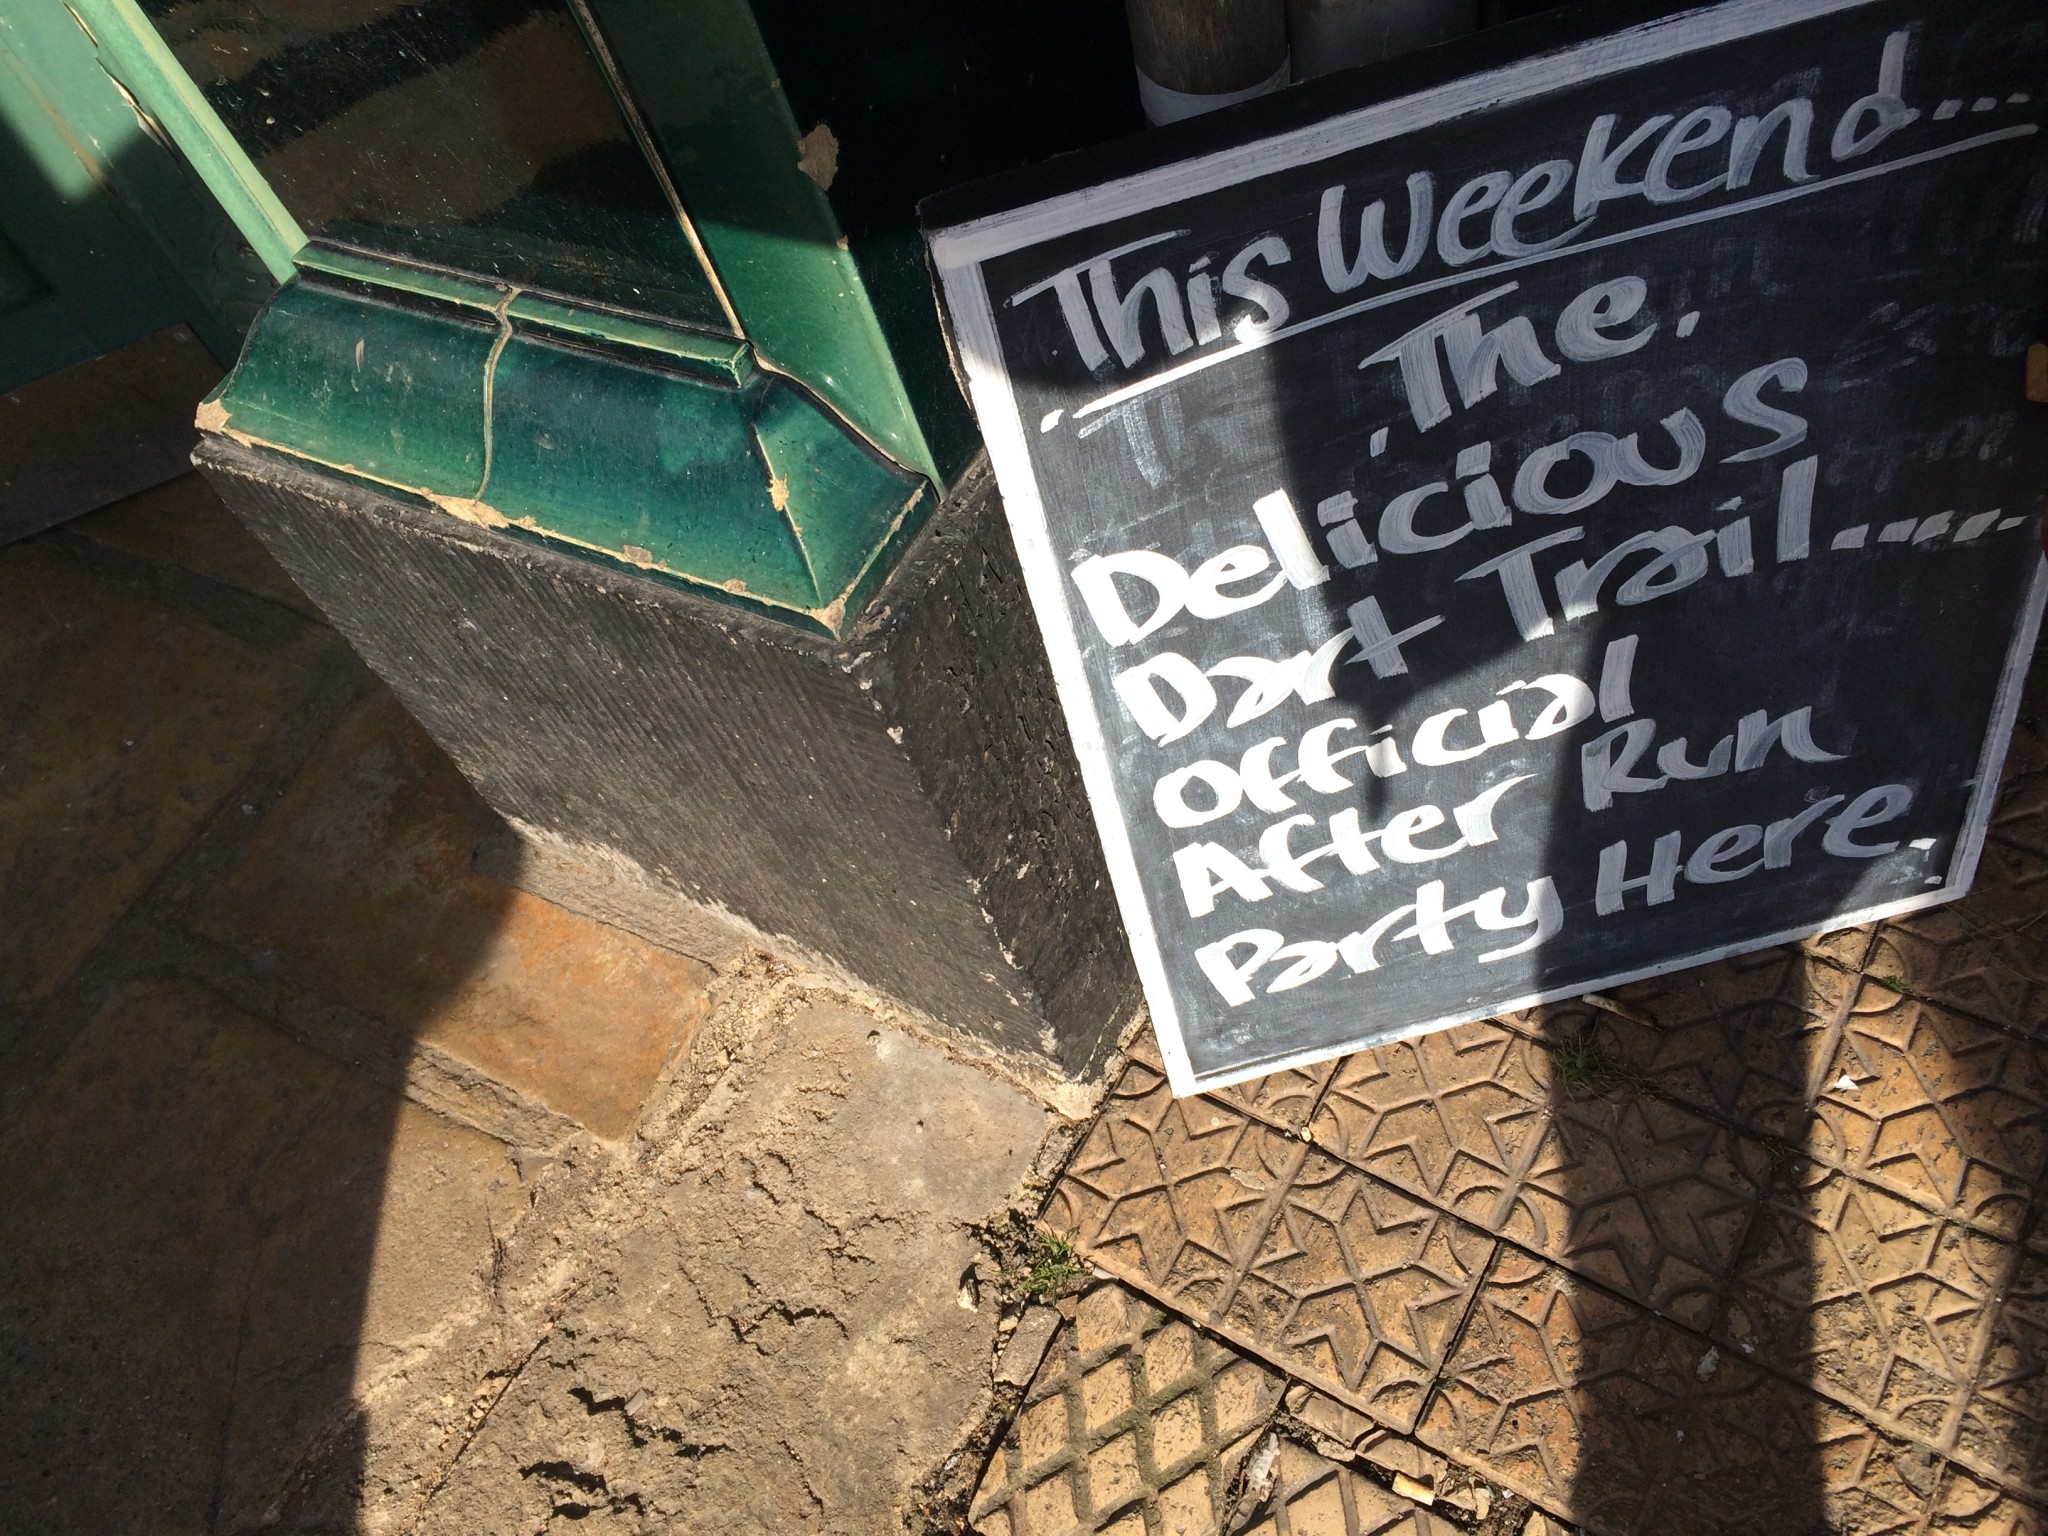 This Weekend...
The.
Delicious
Dart Trail.....
Official
After Run
Party Here.